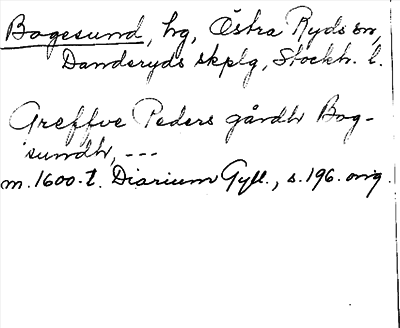 Bogesund, hg, Östra Ryds sn,
Danderyds skplg, Stockh. l.
Greffve Peders gårdh Bog-
sundh, ---
m. 1600-t. Diarium Gyll., s. 196. orig.